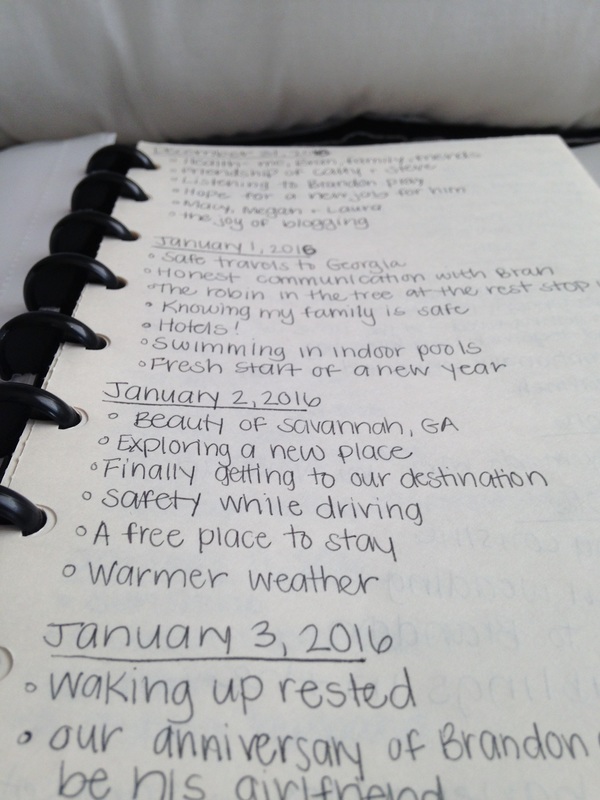 December 31, 2015
• Health: me, Bran, family, friends
• Friendship of Caity + Steve
• Listening to Brandon play
• Hope for a new job for him
• Macy, Megan + Laura
• the joy of blogging
January 1, 2016
• Safe travels to Georgia
• Honest communication with Bran
• The robin in the tree at the rest stop
• Knowing my family is safe
• Hotels!
• Swimming in indoor pools
• Fresh start of a new year
January 2, 2016
• Beauty of Savannah, GA
• Exploring a new place
• Finally getting to our destination
• Safety while driving
• A free place to stay
• Warmer weather
January 3, 2016
• Waking up rested
• our anniversary of Brandon
be his girlfriend